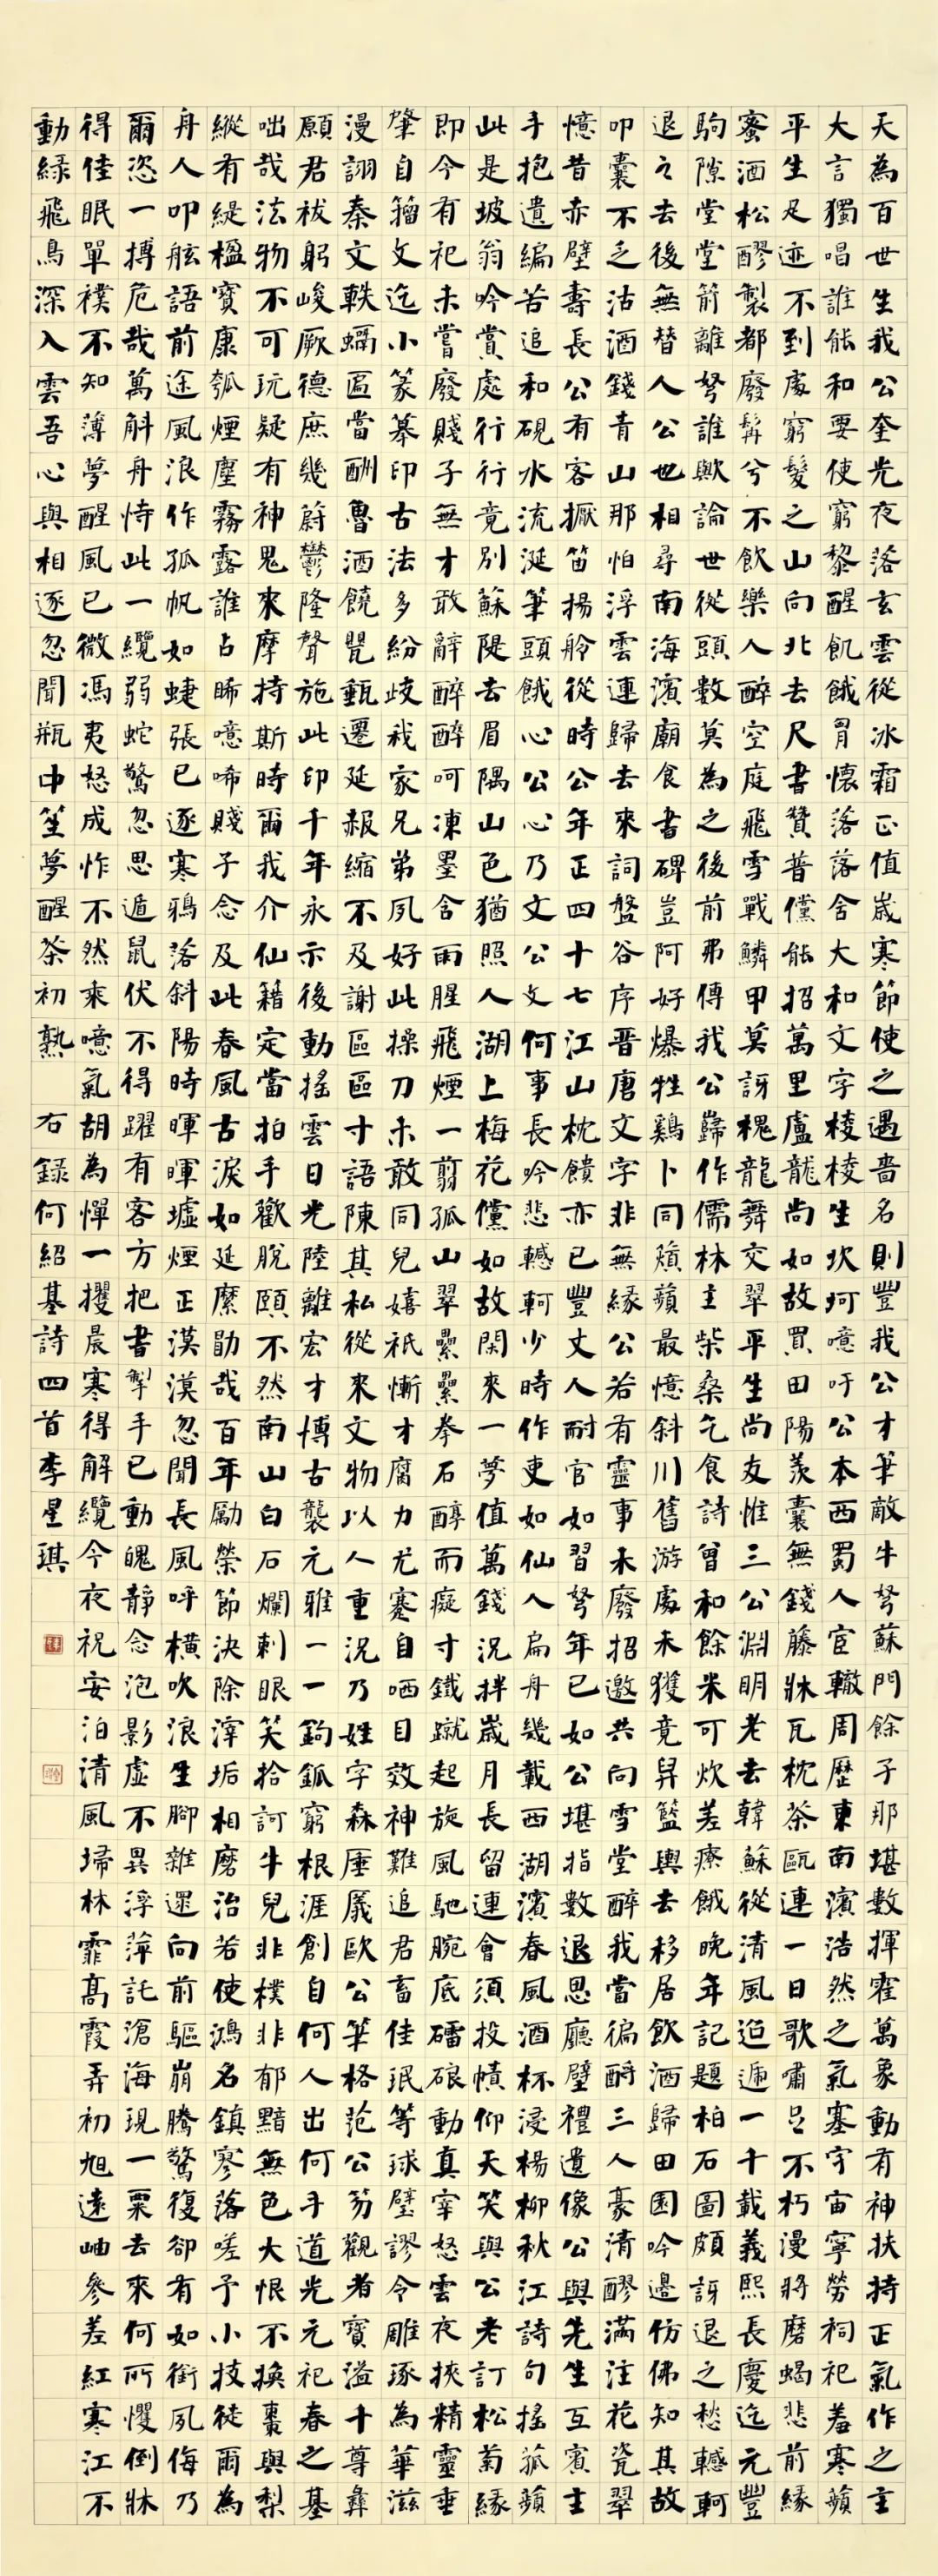 天為百世生我公奎光夜落玄雲從冰霜正值歲寒節使之遇嗇名則豐我公才筆敵牛弩蘇門餘子那堪數揮霍萬象動有神扶持正氣作之主
大言獨唱誰能和要使窮黎醒飢餓胃懷落落舍大和文字棱棱生坎坷噫吁公本西蜀人宦轍周歷東南濱浩然之氣塞宇宙寧勞祠祀羞寒蘋
平生足迹不到處窮髮之山向北去尺書贊普儻能招萬里盧龍尚如故買田陽羨囊無錢藤牀瓦枕茶甌連一日歌嘯呂不朽漫將磨蝎悲前緣
蜜酒松醪製都廢髯兮不飲樂人醉空庭飛雪戰鱗甲莫訝槐龍舞交翠平生尚友惟三公淵明老去韓蘇從清風追逦一千載義熙長慶迄元豐
駒隙堂堂箭離弩誰歟論世從頭數莫為之後前弗傳我公歸作儒林主柴桑乞食詩曾和餘米可炊差療餓晚年記題柏石圖頗訝退之愁轗軻
退之去後無替人公也相尋南海濱廟食書碑豈阿好爆牲鷄卜同蘋蘋最憶斜川舊游處未獲竟舁籃輿去移居飲酒歸田園吟邊仿佛知其故
叩囊不乏沽酒錢青山那怕浮雲連歸去來詞盤谷序晋唐文字非無緣公若有靈事未廢招邀共向雪堂醉我當徧酹三人豪清醪滿注花瓷翠
憶昔赤壁壽長公有客擫笛揚舲從時公年正四十七江山枕饋亦已豐丈人耐官如習弩年已如公堪指數退思廳壁禮遺像公與先生互賓主
手抱遺編苦追和硯水流涎筆頭餓心公心乃文公文何事長吟悲轗軻少時作吏如仙人扁舟幾載西湖濱春風酒杯浸楊柳秋江詩句搖菰蘋
此是坡翁吟賞處行行竟別蘇隄去眉隅山色猶照人湖上梅花儻如故閑來一夢值萬錢況拌歲月長留連會須投幘仰天笑與公老訂松菊緣
即今有祀未嘗廢賤子無才敢辭醉醉呵凍墨含雨腥飛煙一翦孤山翠纍纍拳石醇而癡寸鐵蹴起旋風馳腕底礌硠動真宰怒雲夜挾精靈垂
肇自籀文迄小篆摹印古法多紛歧我家兄弟夙好此操刀未敢同兒嬉祇慚才腐力尤蹇自哂目效神難追君畜佳珉等球璧謬令雕琢為華滋
漫詡秦文軼螭匾當酬魯酒饒甖甀遷延赧縮不及謝區區寸語陳其私從來文物以人重況乃姓字森厜㕒歐公筆格范公笏觀者寶溢十尊彝
願君袚躬峻厥德庶幾蔚鬱隆聲施此印千年永示後動搖雲日光陸離宏才博古襲元雅一一鉤鈲窮根涯創自何人出何手道光元祀春之基
咄哉法物不可玩疑有神鬼來摩持斯時爾我介仙籍定當拍手歡脫頤不然南山白石爛刺眼笑拾訶牛兒非樸非郁黯無色大恨不換棗與梨
縱有緹楹寶康瓠煙塵霧露誰占晞噫唏賤子念及此春風古淚如延縻勖哉百年勵榮節決除滓垢相磨治若使鴻名鎮寥落嗟予小技徒爾為
舟人叩舷語前途風浪作孤帆如蜨張已逐寒鴉落斜陽時暉暉墟煙正漠漠忽聞長風呼橫吹浪生腳雜遝向前驅崩騰驚復卻有如銜夙侮乃
爾恣一搏危哉萬斛舟恃此一纜弱蛇驚忽思遁鼠伏不得躍有客方把書掣手已動魄靜念泡影虛不異浮萍託滄海現一粟去來何所懼倒牀
得佳眠單襆不知薄夢醒風已微馮夷怒成怍不然來噫氣胡為憚一攫晨寒得解纜今夜祝安泊清風埽林霏高霞弄初旭遠岫參差紅寒江不
動綠飛鳥深入雲吾心與相逐忽聞瓶中笙夢醒茶初熟 右錄何紹基詩四首李星琪